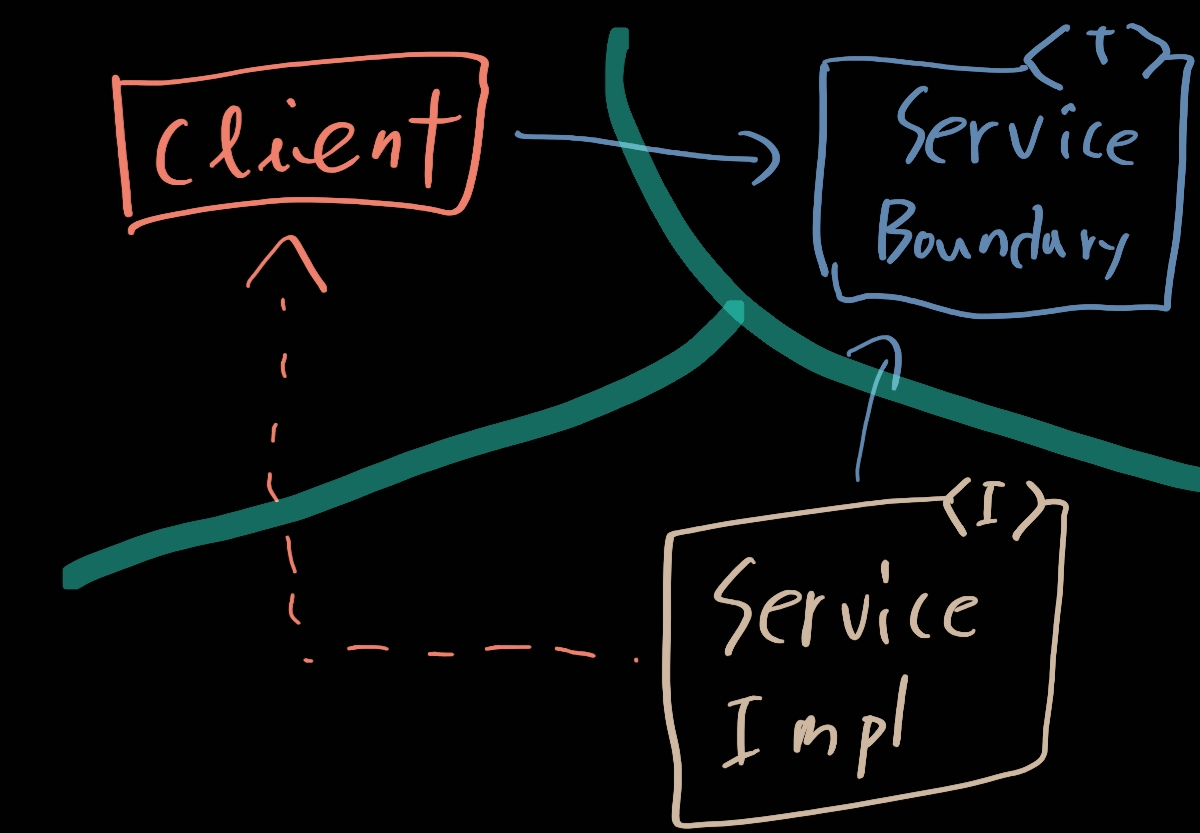 Client
<T>
Service
Boundary
<I>
Service
Impl